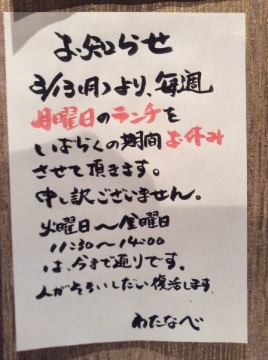 お知らせ
3/13(月)より、毎週
月曜日のランチを
しばらくの期間お休み
させて頂きます。
申し訳ございません。
火曜日〜金曜日
11:30〜14:00
は、今まで通りです。
人がそろいしだい復活します。
わたなべ